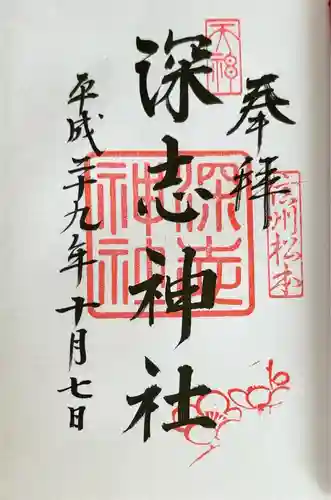 奉拝
天神
信州松本
深志神社
深志神社
平成二十九年十月七日